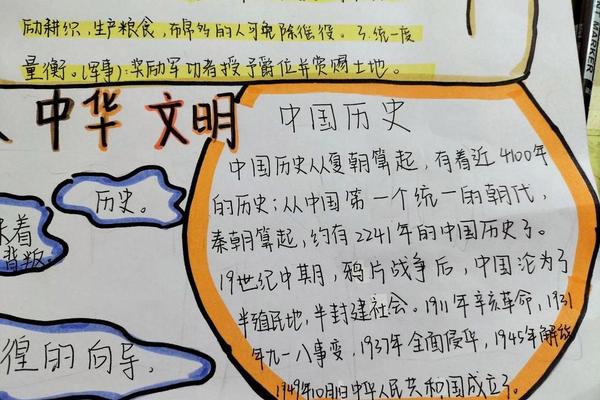 励耕织,生产粮食,布帛多的人可免除徭役。了.统一度
量衡。(军事):奖励军功者授予爵位并赏赐土地。
中华 文明
中国历史
中国历史从夏朝算起,有着近4100年
的历史;从中国第一个统一的朝代,
秦朝算起,约有2241年的中国历史了。
19世纪中期,鸦片战争后,中国沦为了
半殖民地,半封建社会。1911年辛亥革命,1931
年九一八事变,1937年全面侵华,1945年解放
1949年10月1日中华人民共和国成立了。
历史。
味着
背叛。
徨的向导.
MARKER